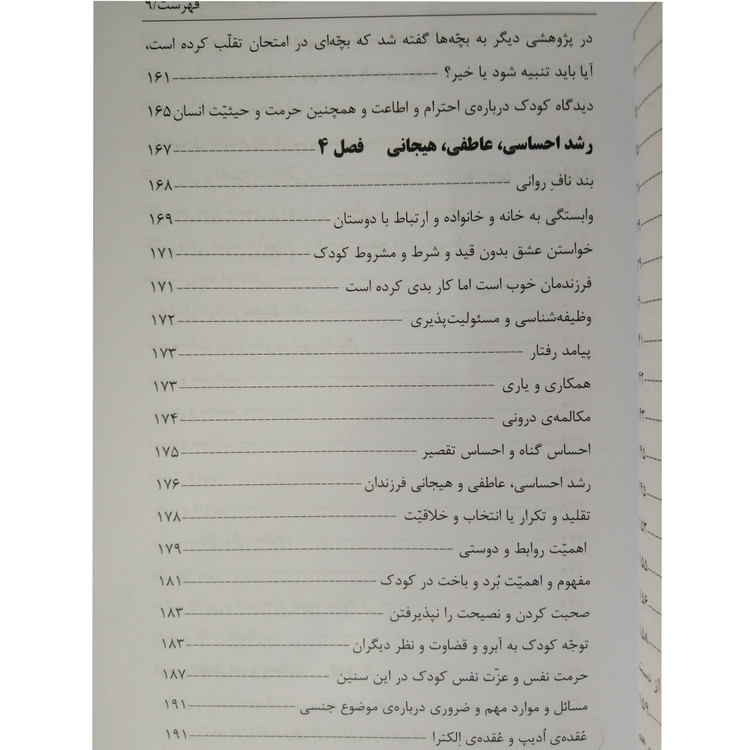 فهرست/۹
در پژوهشی دیگر به بچّه‌ها گفته شد که بچّه‌ای در امتحان تقلّب کرده است،
آیا باید تنبیه شود یا خیر؟ ۱۶۱
دیدگاه کودک درباره‌ی احترام و اطاعت و همچنین حرمت و حیثیّت انسان ۱۶۵
رشد احساسی، عاطفی، هیجانی فصل ۴ ۱۶۷
بند نافِ روانی ۱۶۸
وابستگی به خانه و خانواده و ارتباط با دوستان ۱۶۹
خواستن عشق بدون قید و شرط و مشروط کودک ۱۷۱
فرزندمان خوب است اما کار بدی کرده است ۱۷۱
وظیفه‌شناسی و مسئولیت‌پذیری ۱۷۲
پیامد رفتار ۱۷۳
همکاری و یاری ۱۷۳
مکالمه‌ی درونی ۱۷۴
احساس گناه و احساس تقصیر ۱۷۵
رشد احساسی، عاطفی و هیجانی فرزندان ۱۷۶
تقلید و تکرار یا انتخاب و خلاقیّت ۱۷۸
اهمیّت روابط و دوستی ۱۷۹
مفهوم و اهمیّت بُرد و باخت در کودک ۱۸۱
صحبت کردن و نصیحت را نپذیرفتن ۱۸۳
توجّه کودک به آبرو و قضاوت و نظر دیگران ۱۸۳
حرمت نفس و عزّت نفس کودک در این سنین ۱۸۷
مسائل و موارد مهم و ضروری درباره‌ی موضوع جنسی ۱۹۱
عُقده‌ی اُدیپ و عُقده‌ی اِلکترا ۱۹۱